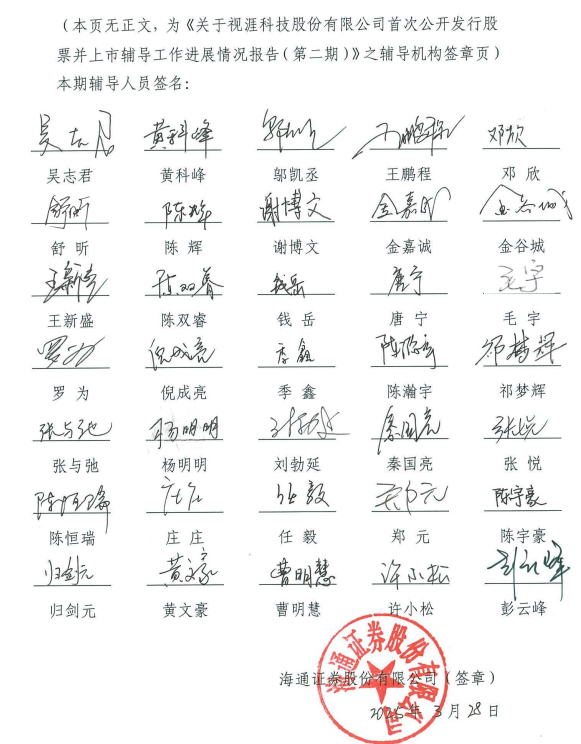 (本页无正文，为《关于视涯科技股份有限公司首次公开发行股
票并上市辅导工作进展情况报告(第二期)》之辅导机构签章页)
本期辅导人员签名：
吴志君 黄科峰 邬凯丞 王鹏程 邓欣
吴志君 黄科峰 邬凯丞 王鹏程 邓 欣
舒昕 陈辉 谢博文 金嘉诚 金谷城
舒 昕 陈 辉 谢博文 金嘉诚 金谷城
王新盛 陈双睿 钱岳 唐宁 毛宇
王新盛 陈双睿 钱 岳 唐 宁 毛 宇
罗为 倪成亮 季鑫 陈瀚宇 祁梦辉
罗 为 倪成亮 季 鑫 陈瀚宇 祁梦辉
张与弛 杨明明 刘勃延 秦国亮 张悦
张与弛 杨明明 刘勃延 秦国亮 张 悦
陈恒瑞 庄庄 任毅 郑元 陈宇豪
陈恒瑞 庄 庄 任 毅 郑 元 陈宇豪
归剑元 黄文豪 曹明慧 许小松 彭云峰
归剑元 黄文豪 曹明慧 许小松 彭云峰
海通证券股份有限公司
海通证券股份有限公司(签章)
2025年 3月 28日